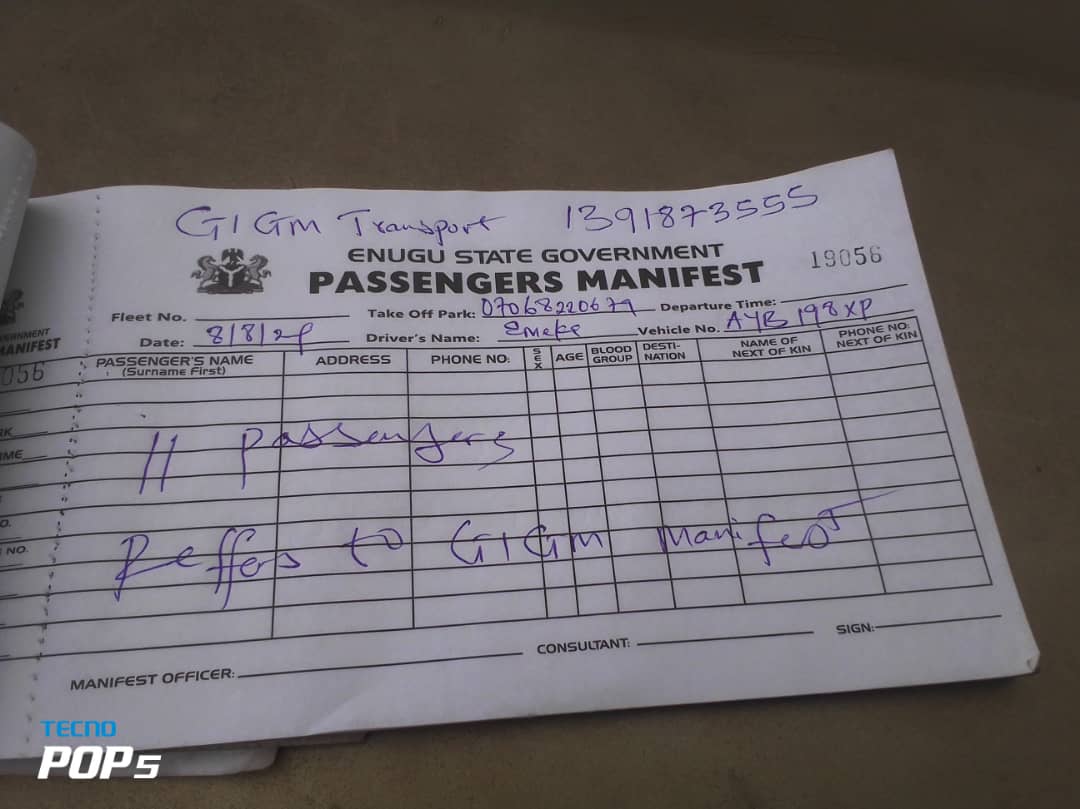 GIGM Transport 1391873555
ENUGU STATE GOVERNMENT
PASSENGERS MANIFEST
19056
Fleet No.
Take Off Park: 07068220679
Departure Time:
Date: 8/8/2
Driver's Name: Emeke
Vehicle No. AYB 198XP
PASSENGER'S NAME
(Surname First)
ADDRESS
PHONE NO:
SEX
AGE
BLOOD GROUP
DESTI-NATION
NAME OF NEXT OF KIN
PHONE NO: NEXT OF KIN
11 passengers
Reffers to GIGM Manifest
MANIFEST OFFICER:
CONSULTANT:
SIGN:
ERNMENT
MANIFEST
056
RK
IME
O.
NO.
TECNO
POP5